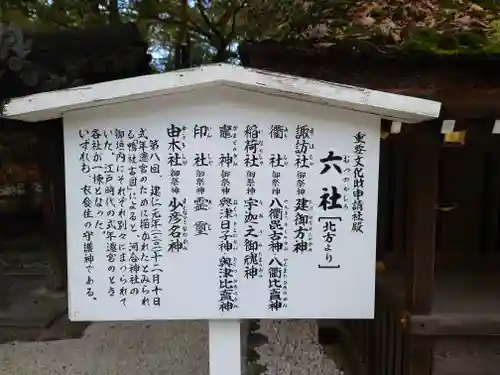 重要文化財申請社殿
六社 [北方より]
むつのやしろ
諏訪社 御祭神 建御方神
衢社 御祭神 八衢毘古神 八衢比賣神
稲荷社 御祭神 宇迦之御魂神
竈神 御祭神 奥津日子神 奥津比賣神
印社 御祭神 霊璽
由木社 御祭神 少彦名神
第八回、建仁元年(一二〇一)十二月十日
式年遷宮のために描かれたとみられ
る鴨社古図によると、河合神社の
御垣内にそれぞれ別々にまつられて
いた。江戸時代の式年遷宮のとき
各社が一棟となった。
いずれも、衣食住の守護神である。